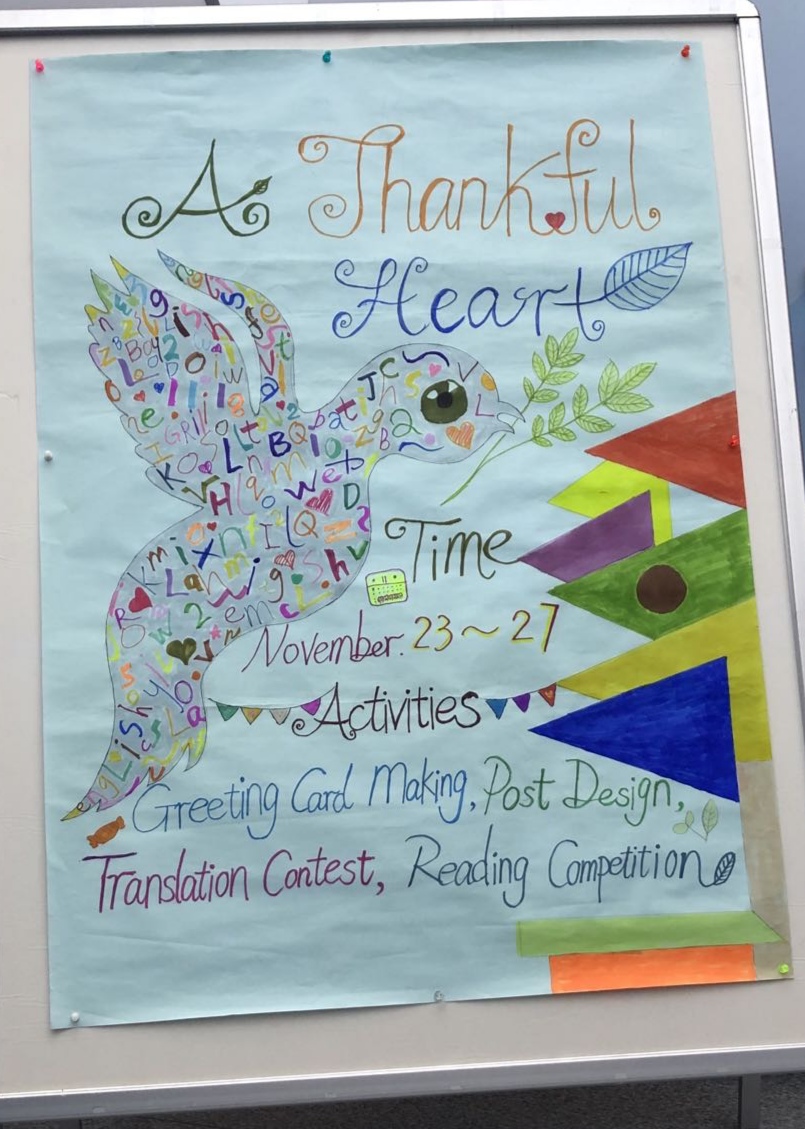 A Thankful
Heart
Time
November. 23~27
Activities
Greeting Card Making, Post Design,
Translation Contest, Reading Competition